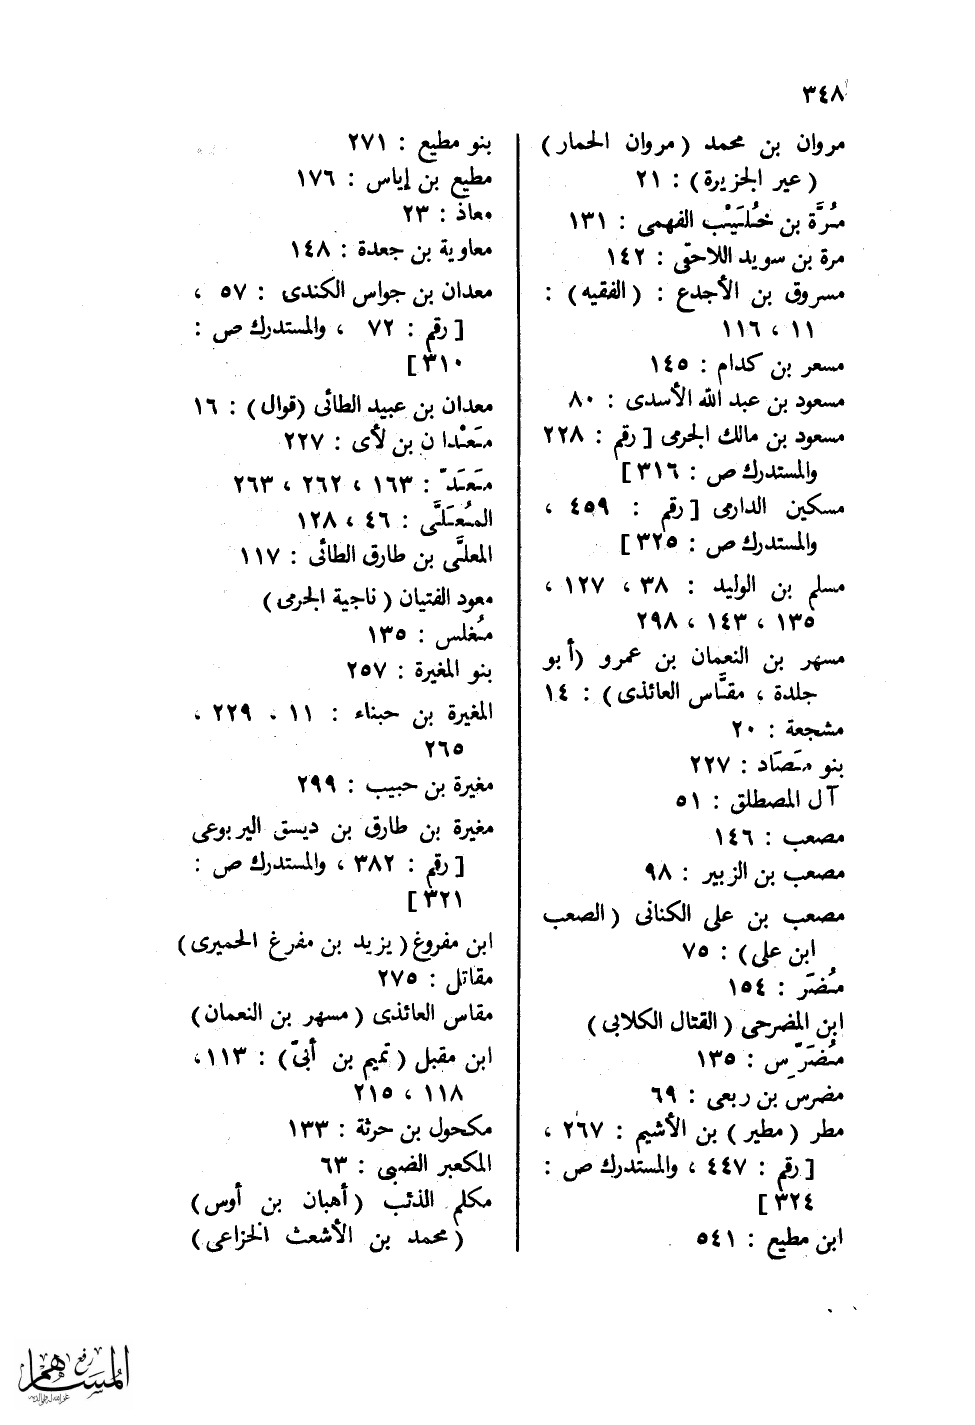 ٣٤٨
مروان بن محمد (مروان الحمار)
(عير الجزيرة) : ٢١
مُرَّة بن خُلَيْب الفهمى : ١٣١
مرة بن سويد اللاحقى : ١٤٢
مسروق بن الأجدع : (الفقيه) :
١١ ، ١١٦
مسعر بن كدام : ١٤٥
مسعود بن عبد الله الأسدى : ٨٠
مسعود بن مالك الجرمى [ رقم : ٢٢٨
والمستدرك ص : ٣١٦ ]
مسكين الدارمى [ رقم : ٤٥٩ ،
والمستدرك ص : ٣٢٥ ]
مسلم بن الوليد : ٣٨ ، ١٢٧ ،
١٣٥ ، ١٤٣ ، ٢٩٨
مسهر بن النعمان بن عمرو (أبو
جلدة ، مقَّاس العائذى) : ١٤
مشجعة : ٢٠
بنو مَصَاد : ٢٢٧
آل المصطلق : ٥١
مصعب : ١٤٦
مصعب بن الزبير : ٩٨
مصعب بن على الكنانى (الصعب
ابن على) : ٧٥
مُضَر : ١٥٤
ابن المضرحى (القتال الكلابى)
مُضَرِّس : ١٣٥
مضرس بن ربعى : ٦٩
مطر (مطير) بن الأشيم : ٢٦٧ ،
[ رقم : ٤٤٧ ، والمستدرك ص :
٣٢٤ ]
ابن مطيع : ٥٤١
بنو مطيع : ٢٧١
مطيع بن إياس : ١٧٦
معاذ : ٢٣
معاوية بن جعدة : ١٤٨
معدان بن جواس الكندى : ٥٧ ،
[ رقم : ٧٢ ، والمستدرك ص :
٣١٠ ]
معدان بن عبيد الطائى (قوال) : ١٦
مَعْدان بن لأى : ٢٢٧
مَعَدّ : ١٦٣ ، ٢٦٢ ، ٢٦٣
المُعَلَّى : ٤٦ ، ١٢٨
المعلَّى بن طارق الطائى : ١١٧
معود الفتيان (ناجية الجرمى)
مُغلس : ١٣٥
بنو المغيرة : ٢٥٧
المغيرة بن حبناء : ١١ ، ٢٢٩ ،
٢٦٥
مغيرة بن حبيب : ٢٩٩
مغيرة بن طارق بن ديسق اليربوعى
[ رقم : ٣٨٢ ، والمستدرك ص :
٣٢١ ]
ابن مفروغ (يزيد بن مفرغ الحميرى)
مقاتل : ٢٧٥
مقاس العائذى (مسهر بن النعمان)
ابن مقبل (تميم بن أبىّ) : ١١٣ ،
١١٨ ، ٢١٥
مكحول بن حرثة : ١٣٣
المكعبر الضبى : ٦٣
مكلم الذئب (أهبان بن أوس)
(محمد بن الأشعث الخزاعى)
رفع
المساهم